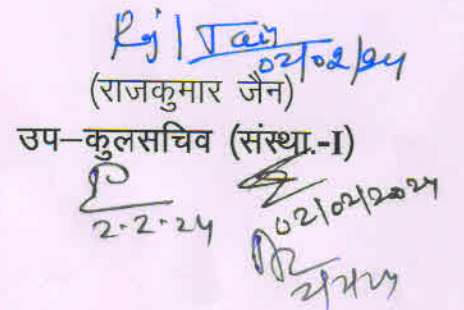 02/02/24
(राजकुमार जैन)
उप–कुलसचिव (संस्था.-I)
2-2-24
02/02/2024